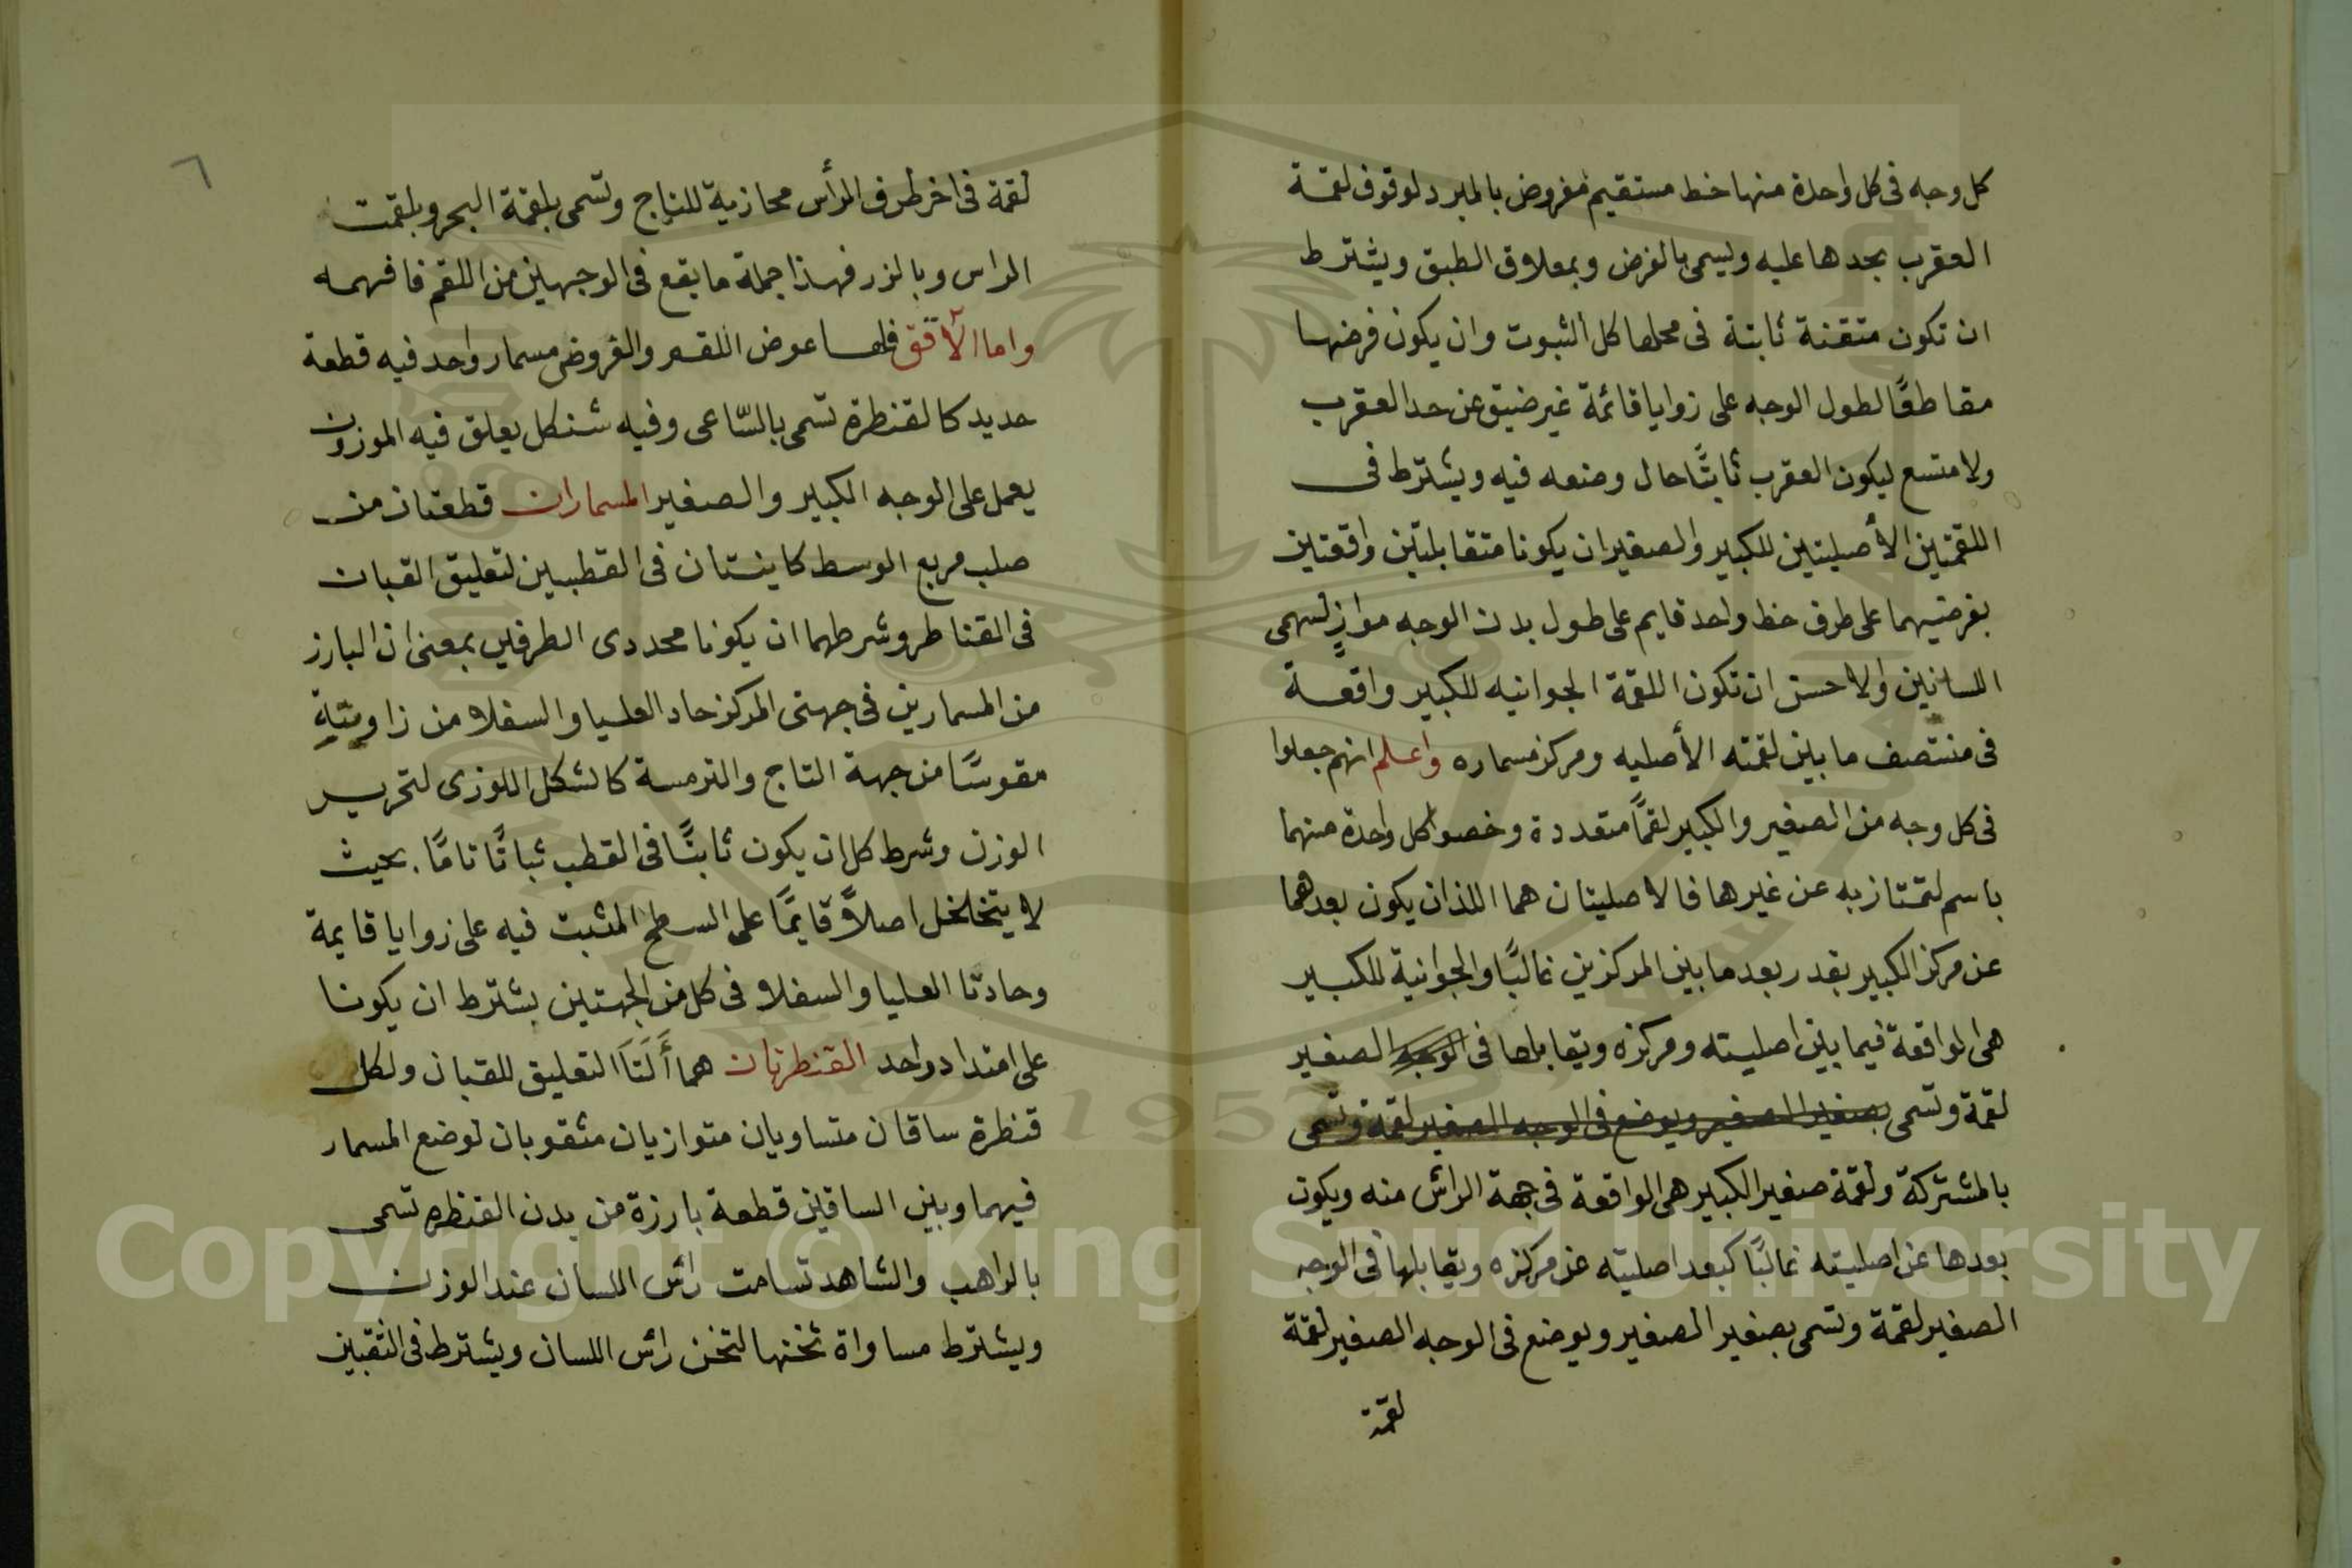 كل وجه فى كل واحدة منها خط مستقيم مفروض بالمبرد لوقوف لقمة
العقرب بحدها عليه وليسمى بالفرض وبمعلاق الطبق ويشترط
ان تكون متقنة ثابتة فى محلها كل الثبوت وان يكون فرضها
مقاطعًا لطول الوجه على زوايا قائمة غير ضيق عن حد العقرب
ولا متسع ليكون العقرب ثابتًا حال وضعه فيه ويشترط فى
اللقمتين الأصيلتين للكبير والصغير ان يكونا متقابلتين واقعتين
بفرضيهما على طرف خط واحد قايم على طول بدن الوجه موازٍ لسهمى
اللسانين والاحسن ان تكون اللقمة الجوانيه للكبير واقعة
فى منتصف ما بين لقمته الأصليه ومركز مسماره واعلم انهم جعلوا
فى كل وجه من الصغير والكبير لقمًا متعددة وخصوا كل واحدة منهما
باسم لتمتاز به عن غيرها فالاصليتان هما اللذان يكون بعدهما
عن مركز الكبير بقدر بعد ما بين المركزين غالبًا والجوانية للكبير
هى الواقعة فيما بين اصليته ومركزه ويقابلها فى الوجه الصغير
لقمة وتسمى بصغير الصغير ويوضع فى الوجه الصغير لقمة وتسمى
بالمشتركة ولقمة صغير الكبير هى الواقعة فى جهة الرأس منه ويكون
بعدها عن اصليته غالبًا كبعد اصليته عن مركزه ويقابلها فى الوجه
الصغير لقمة وتسمى بصغير الصغير ويوضع فى الوجه الصغير لقمة
لقمة
٦
لقمة فى اخر طرف الرأس محازية للتاج وتسمى بلقمة البحر وبلقمت
الراس وبالزر فهذا جملة ما يقع فى الوجهين من اللقم فافهمه
واما فلها عوض اللقم والفروض مسمار واحد فيه قطعة
حديد كالقنطرة تسمى بالسّاعى وفيه شنكل يعلق فيه الموزون
يعمل على الوجه الكبير والصغير المسماران قطعتان من
صلب مربع الوسط كاينتان فى القطبين لتعليق القبان
فى القناطر وشرطهما ان يكونا محددى الطرفين بمعنى ان البارز
من المسمارين فى جهتى المركز حاد العليا والسفلا من زاويتيه
مقوسًا من جهة التاج والترمسة كالشكل اللوزى لتحرير
الوزن وشرط كل ان يكون ثابتًا فى القطب ثباتًا تامًا. بحيث
لا يتخلخل اصلاً قايمًا على السطح المثبت فيه على زوايا قايمة
وحادتا العليا والسفلا فى كل من الجهتين بشترط ان يكونا
على امتداد واحد القنطرتان هما ألَتَا لتعليق للقبان ولكل
قنظرة ساقان متساويان متوازيان مثقوبان لوضع المسمار
فيهما وبين الساقين قطعة بارزة من بدن القنظره تسمى
بالراهب والشاهد تسامت رأس اللسان عند الوزن
ويشترط مساواة ثخنها لتخن رأس اللسان ويشترط فى الثقبين
Copyright © King Saud University
1957